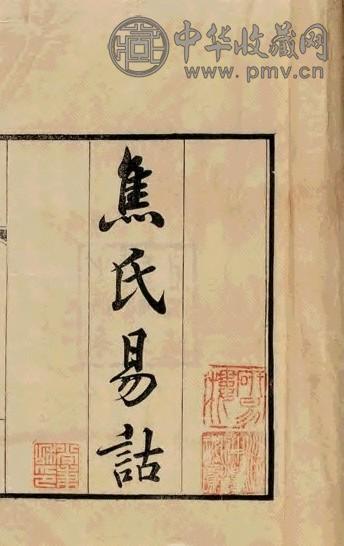 中华收藏网
www.pmv.cn
焦氏易詁